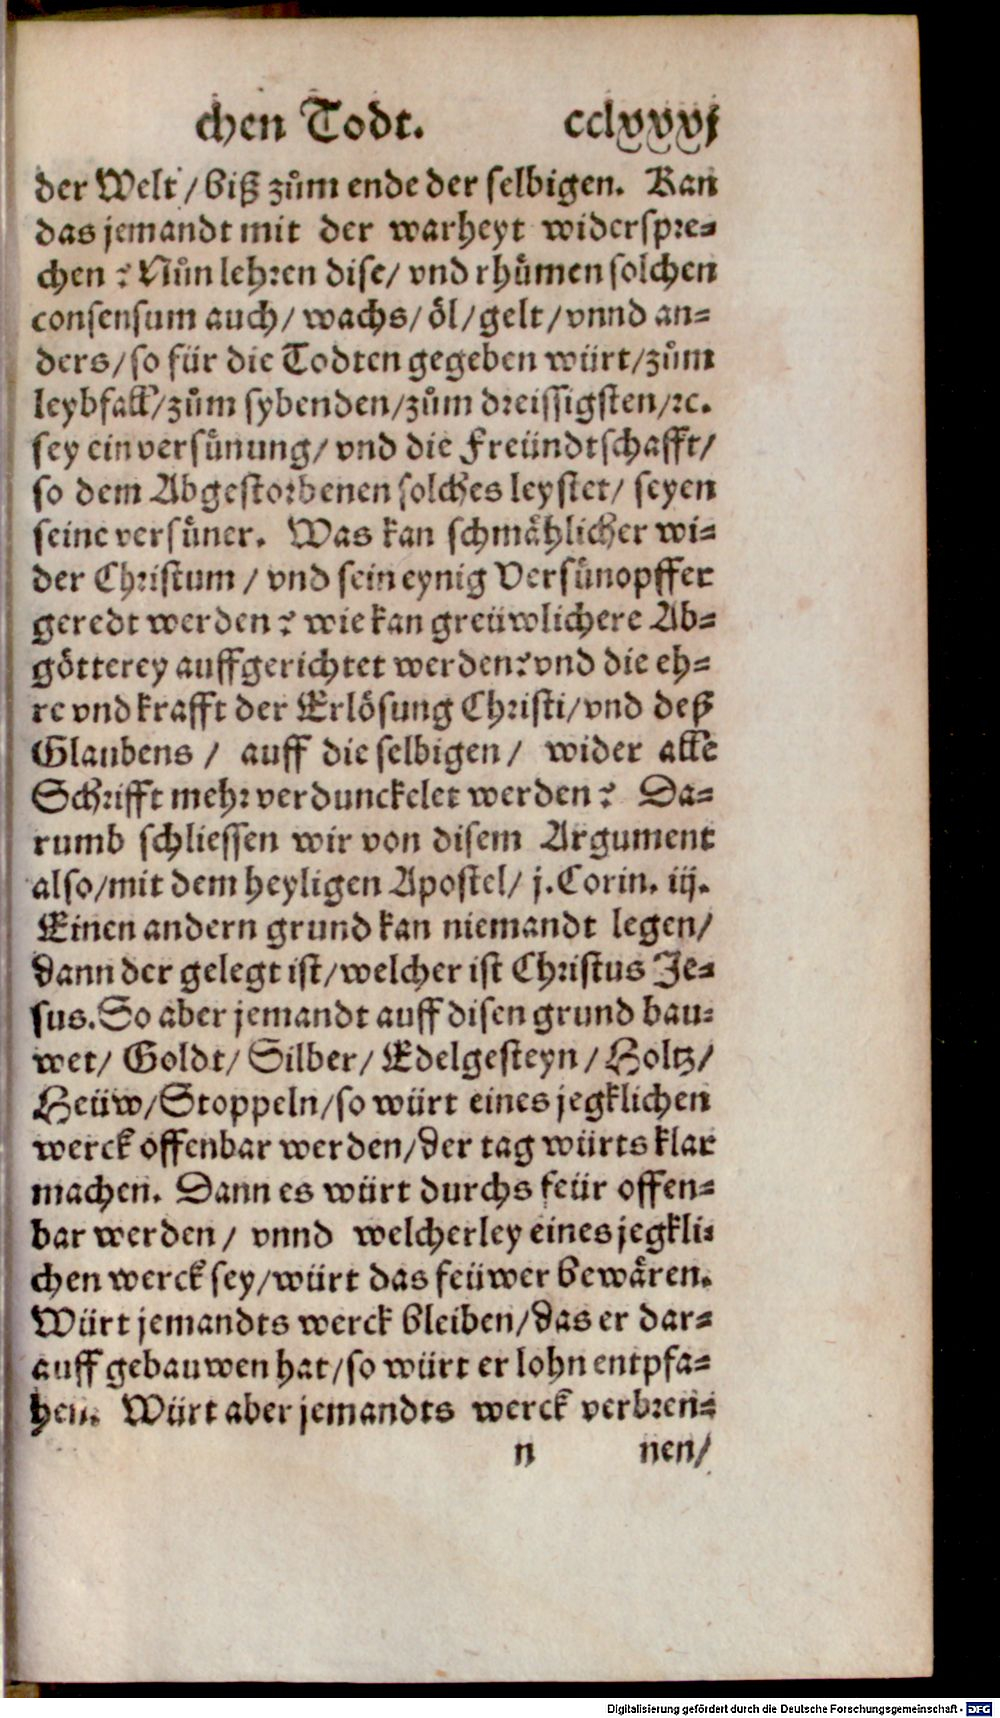 chen Todt. cclxxxj
der Welt / biß zům ende der selbigen. Kan
das jemandt mit der warheyt widerspre-
chen? Nůn lehren dise/ vnd rhůmen solchen
consensum auch/ wachs/ öl/ gelt/ vnnd an-
ders/ so für die Todten gegeben würt/ zům
leybfall/ zům sybenden/ zům dreissigsten/ ꝛc.
sey ein versůnung/ vnd die Freündtschafft/
so dem Abgestorbenen solches leystet/ seyen
seine versůner. Was kan schmählicher wi-
der Christum / vnd sein eynig Versůnopffer
geredt werden? wie kan greüwlichere Ab-
götterey auffgerichtet werden? vnd die eh-
re vnd krafft der Erlösung Christi/ vnd deß
Glaubens / auff die selbigen / wider alle
Schrifft mehr verdunckelet werden? Da-
rumb schliessen wir von disem Argument
also/ mit dem heyligen Apostel/ j. Corin. iij.
Einen andern grund kan niemandt legen/
dann der gelegt ist/ welcher ist Christus Je-
sus. So aber jemandt auff disen grund bau-
wet/ Goldt/ Silber/ Edelgesteyn / Holtz/
Heüw/ Stoppeln/ so würt eines jegklichen
werck offenbar werden/ der tag würts klar
machen. Dann es würt durchs feür offen-
bar werden / vnnd welcherley eines jegkli-
chen werck sey/ würt das feüwer bewären.
Würt jemandts werck bleiben/ das er dar-
auff gebauwen hat/ so würt er lohn entpfa-
hen. Würt aber jemandts werck verbren-
n nen/
Digitalisierung gefördert durch die Deutsche Forschungsgemeinschaft - DFG